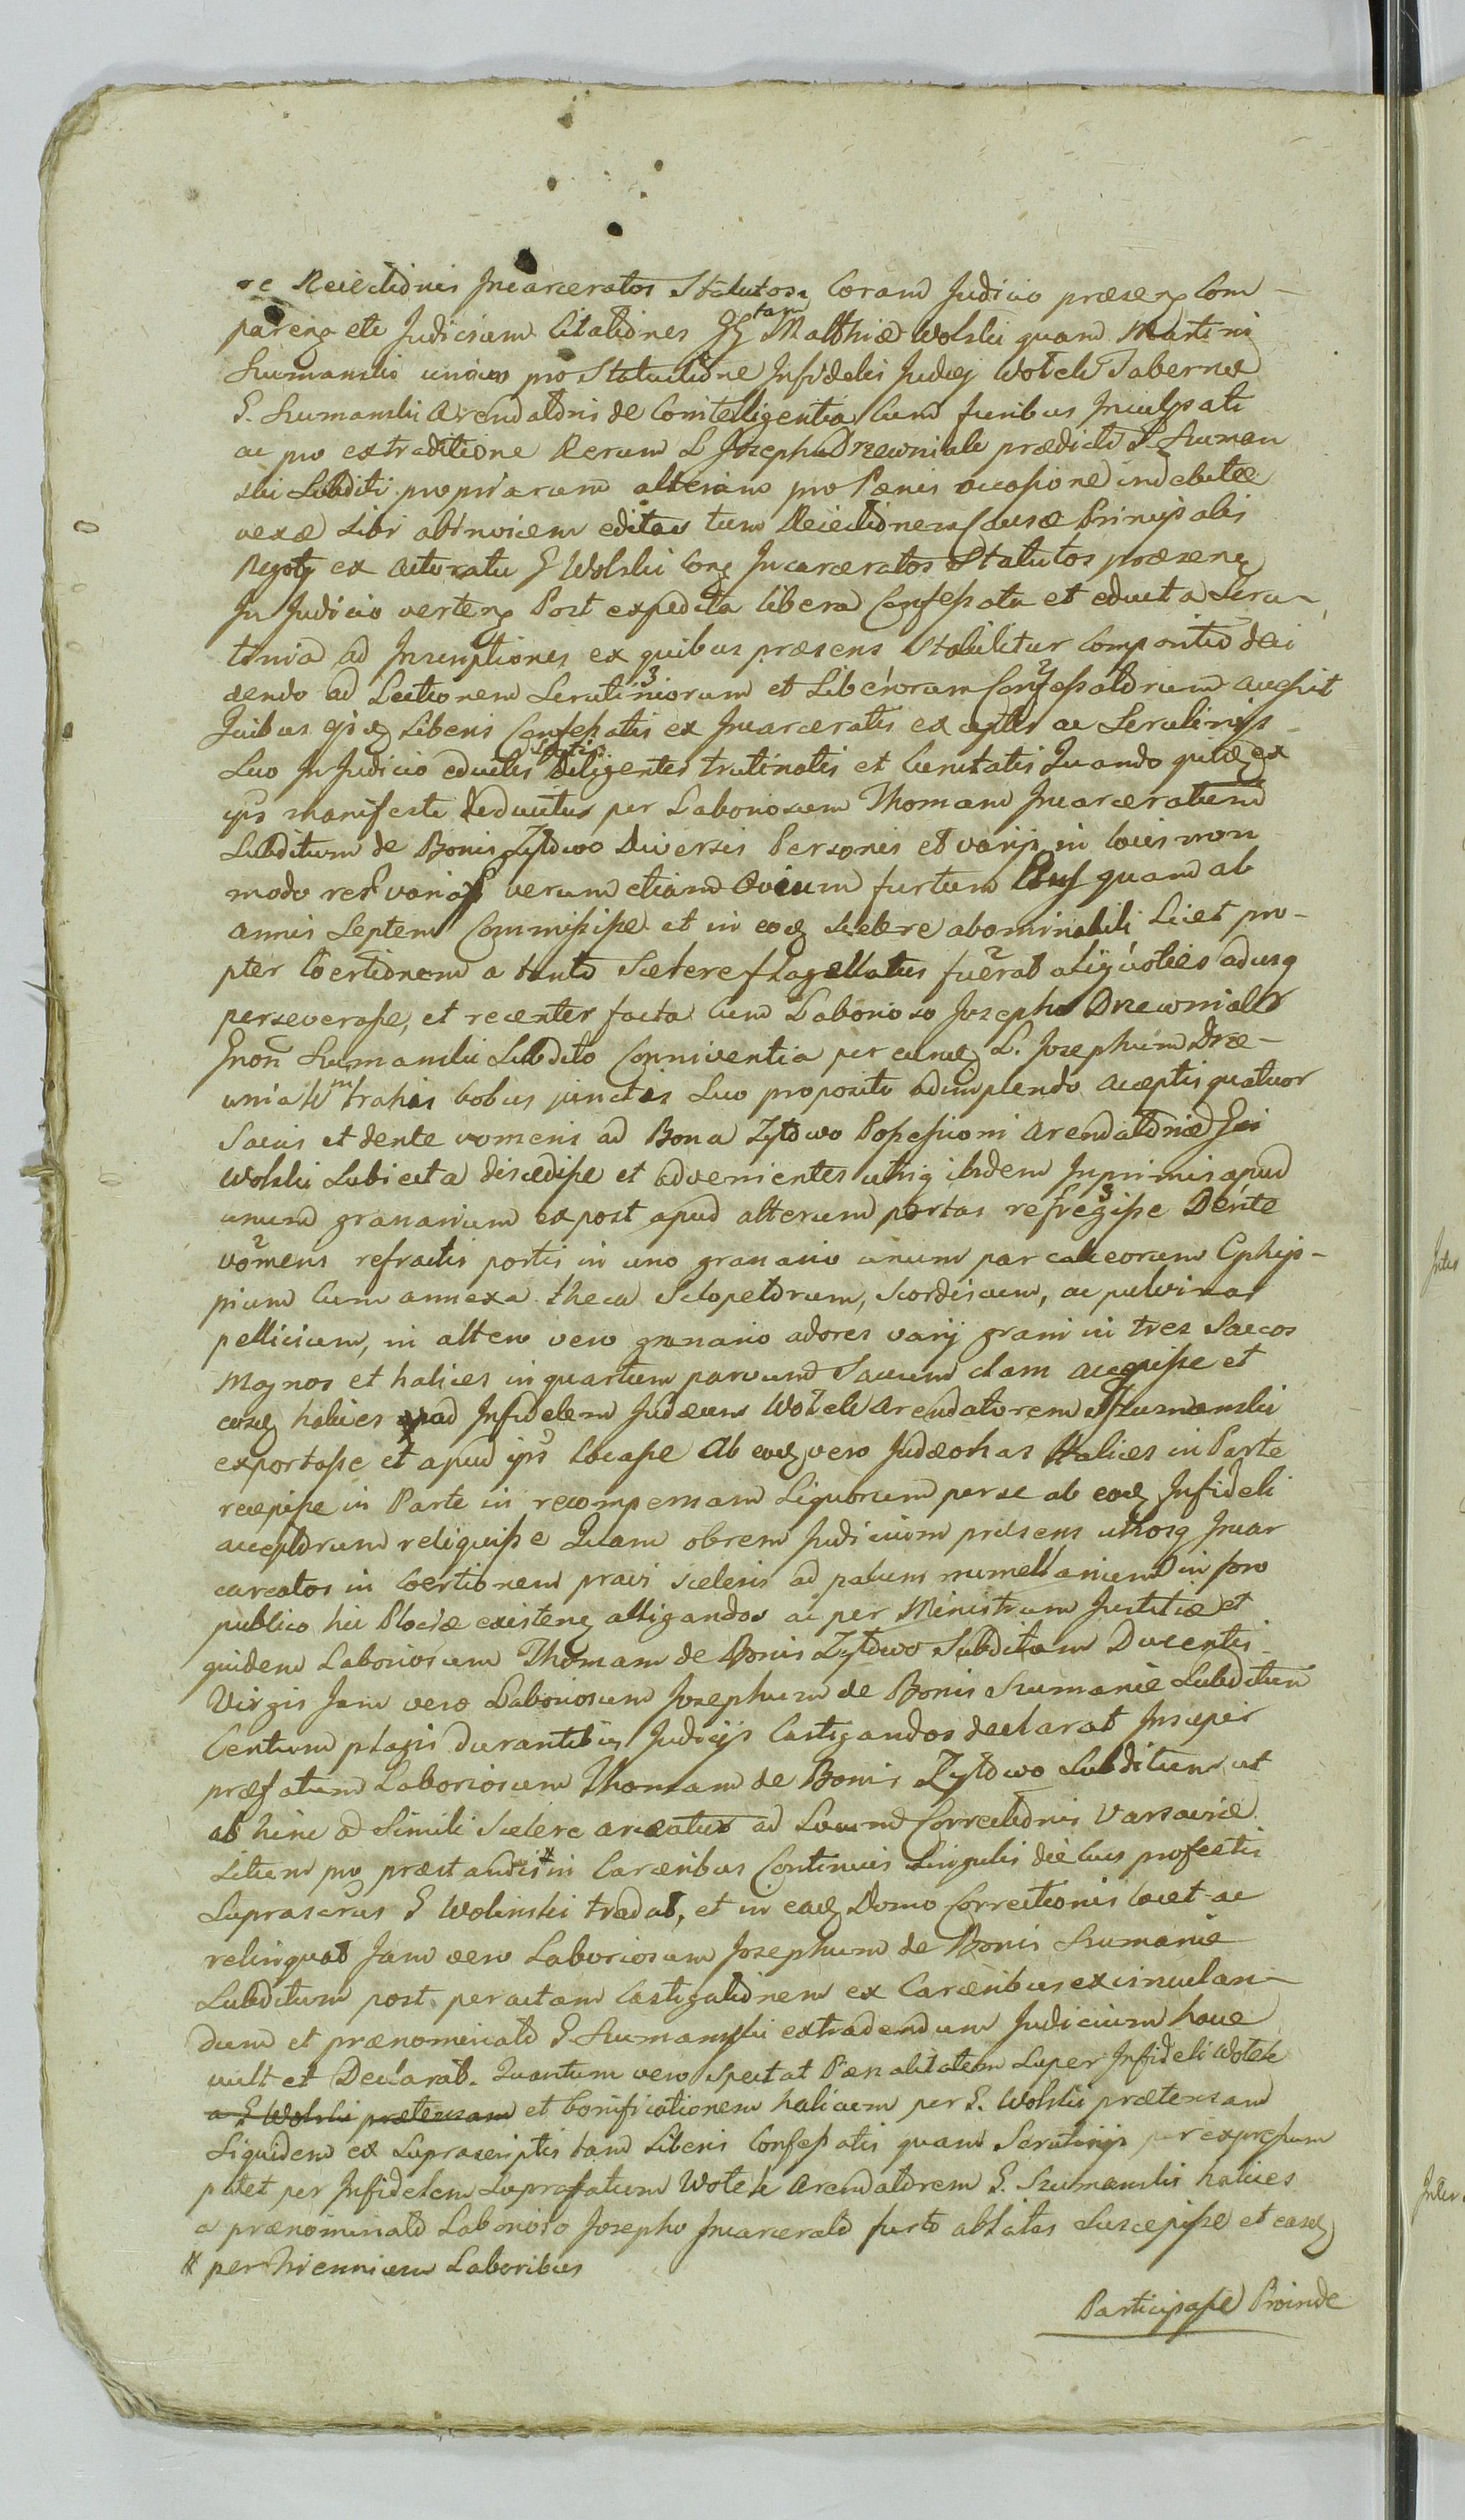 re Reiectionis Incarceratos Statutos, Coram Judicio præsenꝫ Com-
parenꝫ etc Judicium Citationes GG tam Matthiæ Wolski quam Martini
Szumanski unius pro Statuitione Infidelis Judæi Wolek Tabernæ
G. Szumanski Arendatoris de Cointelligentia Cum furibus Inculpati
ac pro extraditione Rerum L Josephi Drzewniak prædicti G Szuman
ski Subditi propriarum alterius pro Pænis occasione indebitæ
vexæ sibi abinvicem editas tum Reiectionem Causæ Principalis
Regoty ex Actoratu G Wolski Conꝫ Incarceratos Statutos præsenꝫ
In Judicio vertenꝫ Post expedita libera Confessata et educta Scru-
tinia ad Inscriptiones ex quibus præsens Stabilitur Compositio deci
dendo ad Lectionem Scrutiniorum et Liberorum Confessatorum accessit
Quibus Liberis Confessatis ex Incarceratis exceptis ac Scrutinijs
Suo In Judicio eductis Lectis diligenter trutinatis et Cunctatis Quando quidꝫ ex
ijs manifeste deducitur per Laboriosum Thomam Incarceratum
Subditum de Bonis Zytowo Diversis Personis et varijs in locis non
modo res varias verum etiam Ovium furtum Plus quam ab
annis Septem Commisisse et in eodꝫ scelere abominabili Licet pro-
pter Coertionem a tanto Scelere flagellatus fuerat aliquoties adusq
perseverasse, et recenter facta Cum Laborioso Josepho Drzewniak
Gnori Szumanski Subdito Conniventia per eundꝫ L. Josephum Drze-
wniak in trahis bobus junctis Suo proposito adimplendo acceptis quatuor
Saccis et dente vomeris ad Bona Zytowo Possessioni Arendatoriæ Gsi
Wolski Subiecta discedisse et advenientes utriq ibidem Inprimis apud
unum granarium expost apud alterum portas refregisse Dente
vomeris refractis portis in uno granario unum par calceorum Ephip-
pium Cum annexa theca Sclopetorum, scordiscum, ac pulvinar
pellicium, in altero vero granario adores varij grani in tres Saccos
Magnos et halices in quartum parvum Saccum clam accepisse et
easdꝫ halices ad Infidelem Judæum Wolek Arendatorem G Szumanski
exportasse et apud ips Locasse Ab eodꝫ vero Judæo has Halices in Parte
recepisse in Parte in recompensam Liquorum per se ab eodꝫ Infideli
acceptorum reliquisse Quam obrem Judicium præsens utrosq Incar
ceratos in Coertionem pravi sceleris ad palum numellarium in foro
publico hic Plociæ existenꝫ alligandos ac per Ministrum Justitiæ et
quidem Laboriosum Thomam de Bonis Zytowo Subditum Ducentis
Virgis Jam vero Laboriosum Josephum de Bonis Szumanie Subditum
Centum plagis durantibus Judicijs Castigandos declarat Insuper
præfatum Laboriosum Thomam de Bonis Zytowo Subditum ut
ab hinc a Simili Scelere arceatur ad Locum Correctionis Varsaviæ
Situm pro præstandis # in Carceribus Continuis Singulis diebus profestis
Suprascrus G Wolinski tradat, et in eadꝫ Domo Correctionis locet ac
relinquat Jam vero Laboriosum Josephum de Bonis Szumanie
Subditum post peractam Castigationem ex Carceribus excinculan-
dum et prænominato G Szumanski extradendum Judicium hocce
vult et Declarat. Quantum vero spectat Pænalitatem Super Infideli Wolek
a G Wolski prætensam et bonificationem halicum per G. Wolski prætensam
Siquidem ex Suprascriptis tam Liberis Confessatis quam Scrutinijs per expressum
patet per Infidelem Suprafatum Wolek Arendatorem G. Szumanski halices
a prænominato Laborioso Josepho Incarcerato furto ablatas Suscepisse et easdꝫ
# per triennium Laboribus
Participasse Proinde